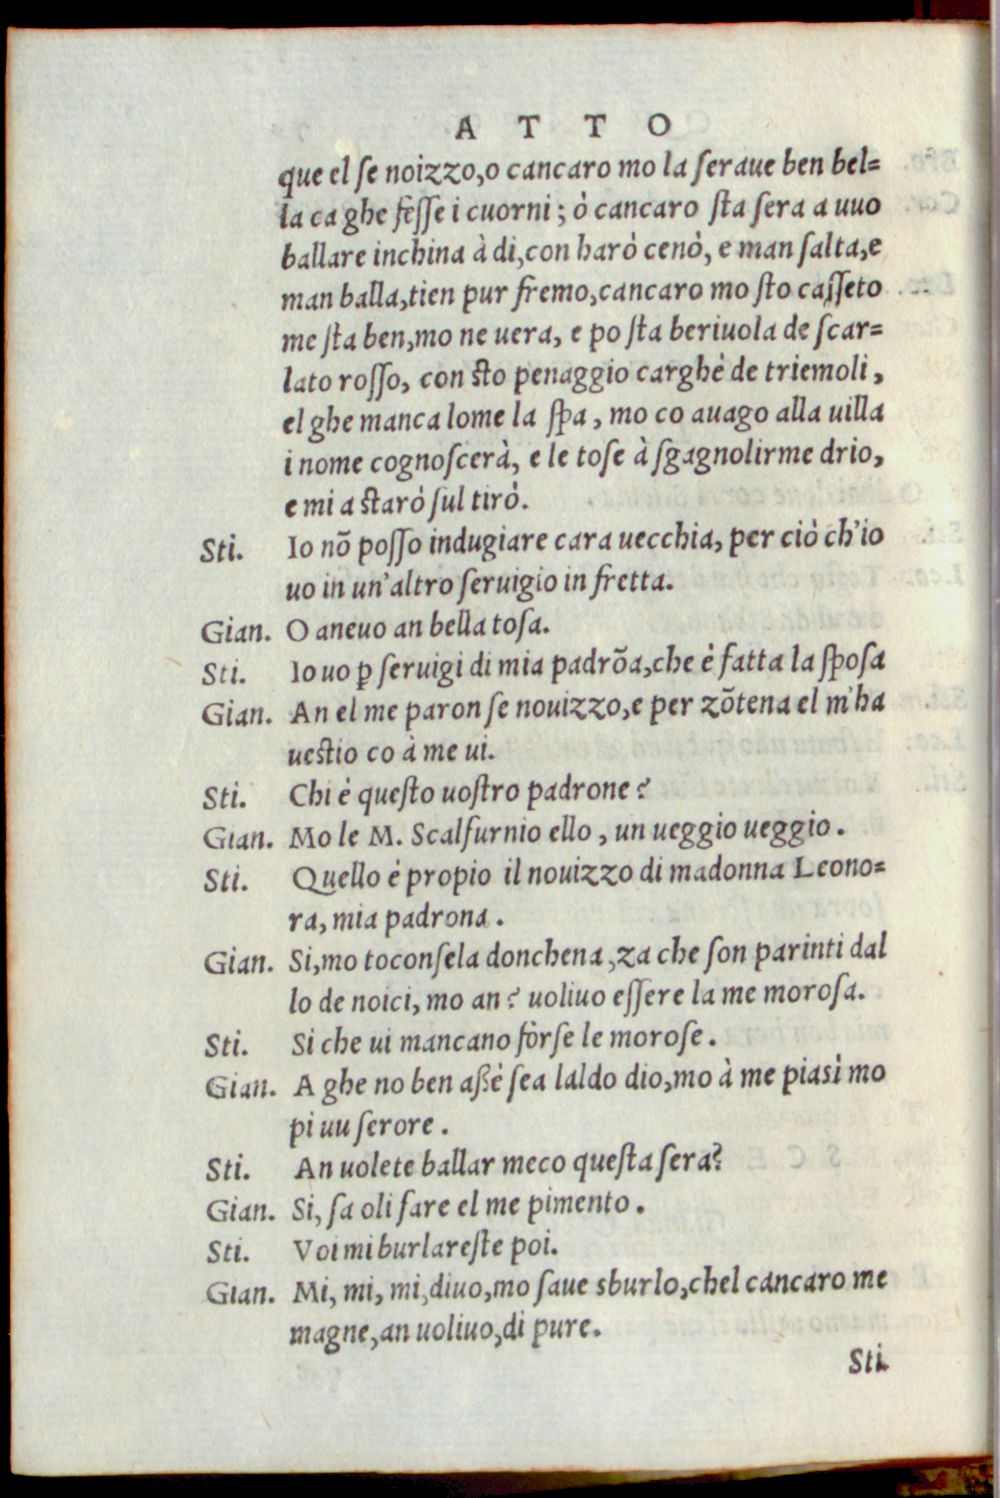 ATTO
que el se noizzo, o cancaro mo la seraue ben bel=
la ca ghe fesse i cuorni; ò cancaro sta sera a uuo
ballare inchina à di, con harò cenò, e man salta, e
man balla, tien pur fremo, cancaro mo sto casseto
me sta ben, mo ne uera, e po sta beriuola de scar=
lato rosso, con sto penaggio carghè de triemoli,
el ghe manca lome la spa, mo co auago alla uilla
i nome cognoscerà, e le tose à sgagnolirme drio,
e mi a starò sul tirò.
Sti. Io nõ posso indugiare cara uecchia, per ciò ch'io
uo in un'altro seruigio in fretta.
Gian. O aneuo an bella tosa.
Sti. Io uo ꝑ seruigi di mia padrõa, che è fatta la sposa
Gian. An el me paron se nouizzo, e per zõtena el m'ha
uestio co à me ui.
Sti. Chi è questo uostro padrone?
Gian. Mo le M. Scalfurnio ello, un ueggio ueggio.
Sti. Quello è propio il nouizzo di madonna Leono=
ra, mia padrona.
Gian. Si, mo toconsela donchena, za che son parinti dal
lo de noici, mo an? uoliuo essere la me morosa.
Sti. Si che ui mancano forse le morose.
Gian. A ghe no ben aßè sea laldo dio, mo à me piasì mo
pi uu serore.
Sti. An uolete ballar meco questa sera?
Gian. Si, sa oli fare el me pimento.
Sti. Voi mi burlareste poi.
Gian. Mi, mi, mi, diuo, mo saue sburlo, chel cancaro me
magne, an uoliuo, di pure.
Sti.